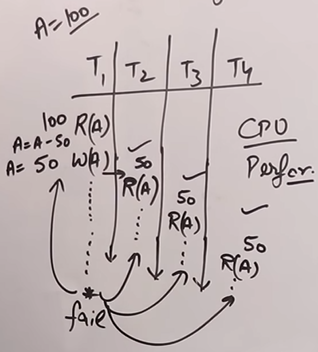 A=100
T1 T2 T3 T4
100 R(A)
A=A-50
A= 50 W(A)
50
R(A)
50
R(A)
50
R(A)
CPU
Perfor.
fail